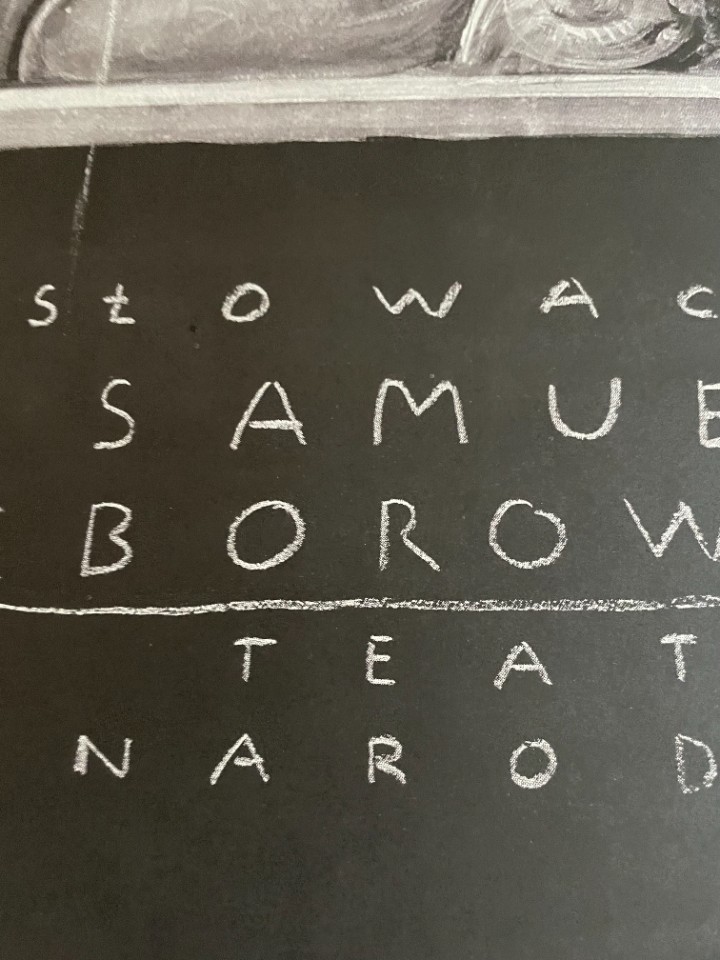 SŁOWAC
SAMUE
BOROW
TEAT
NAROD